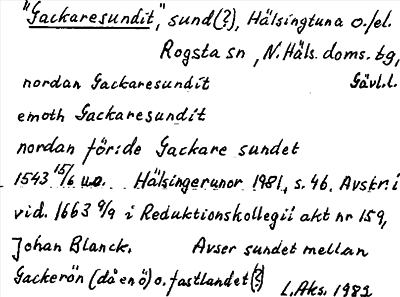 "Gackaresundit," sund(?), Hälsingtuna o./el.
Rogsta sn, N. Häls. doms. tg,
nordan Gackaresundit Gävl.l.
emoth Gackaresundit
nordan för:de Gackare sundet
1543 15/6 u.a. Hälsingerunor 1981, s. 46. Avskr. i
vid. 1663 9/9 i Reduktionskollegii akt nr 159,
Johan Blanck. Avser sundet mellan
Gackerön (då en ö) o. fastlandet(?)
L.Aks. 1982